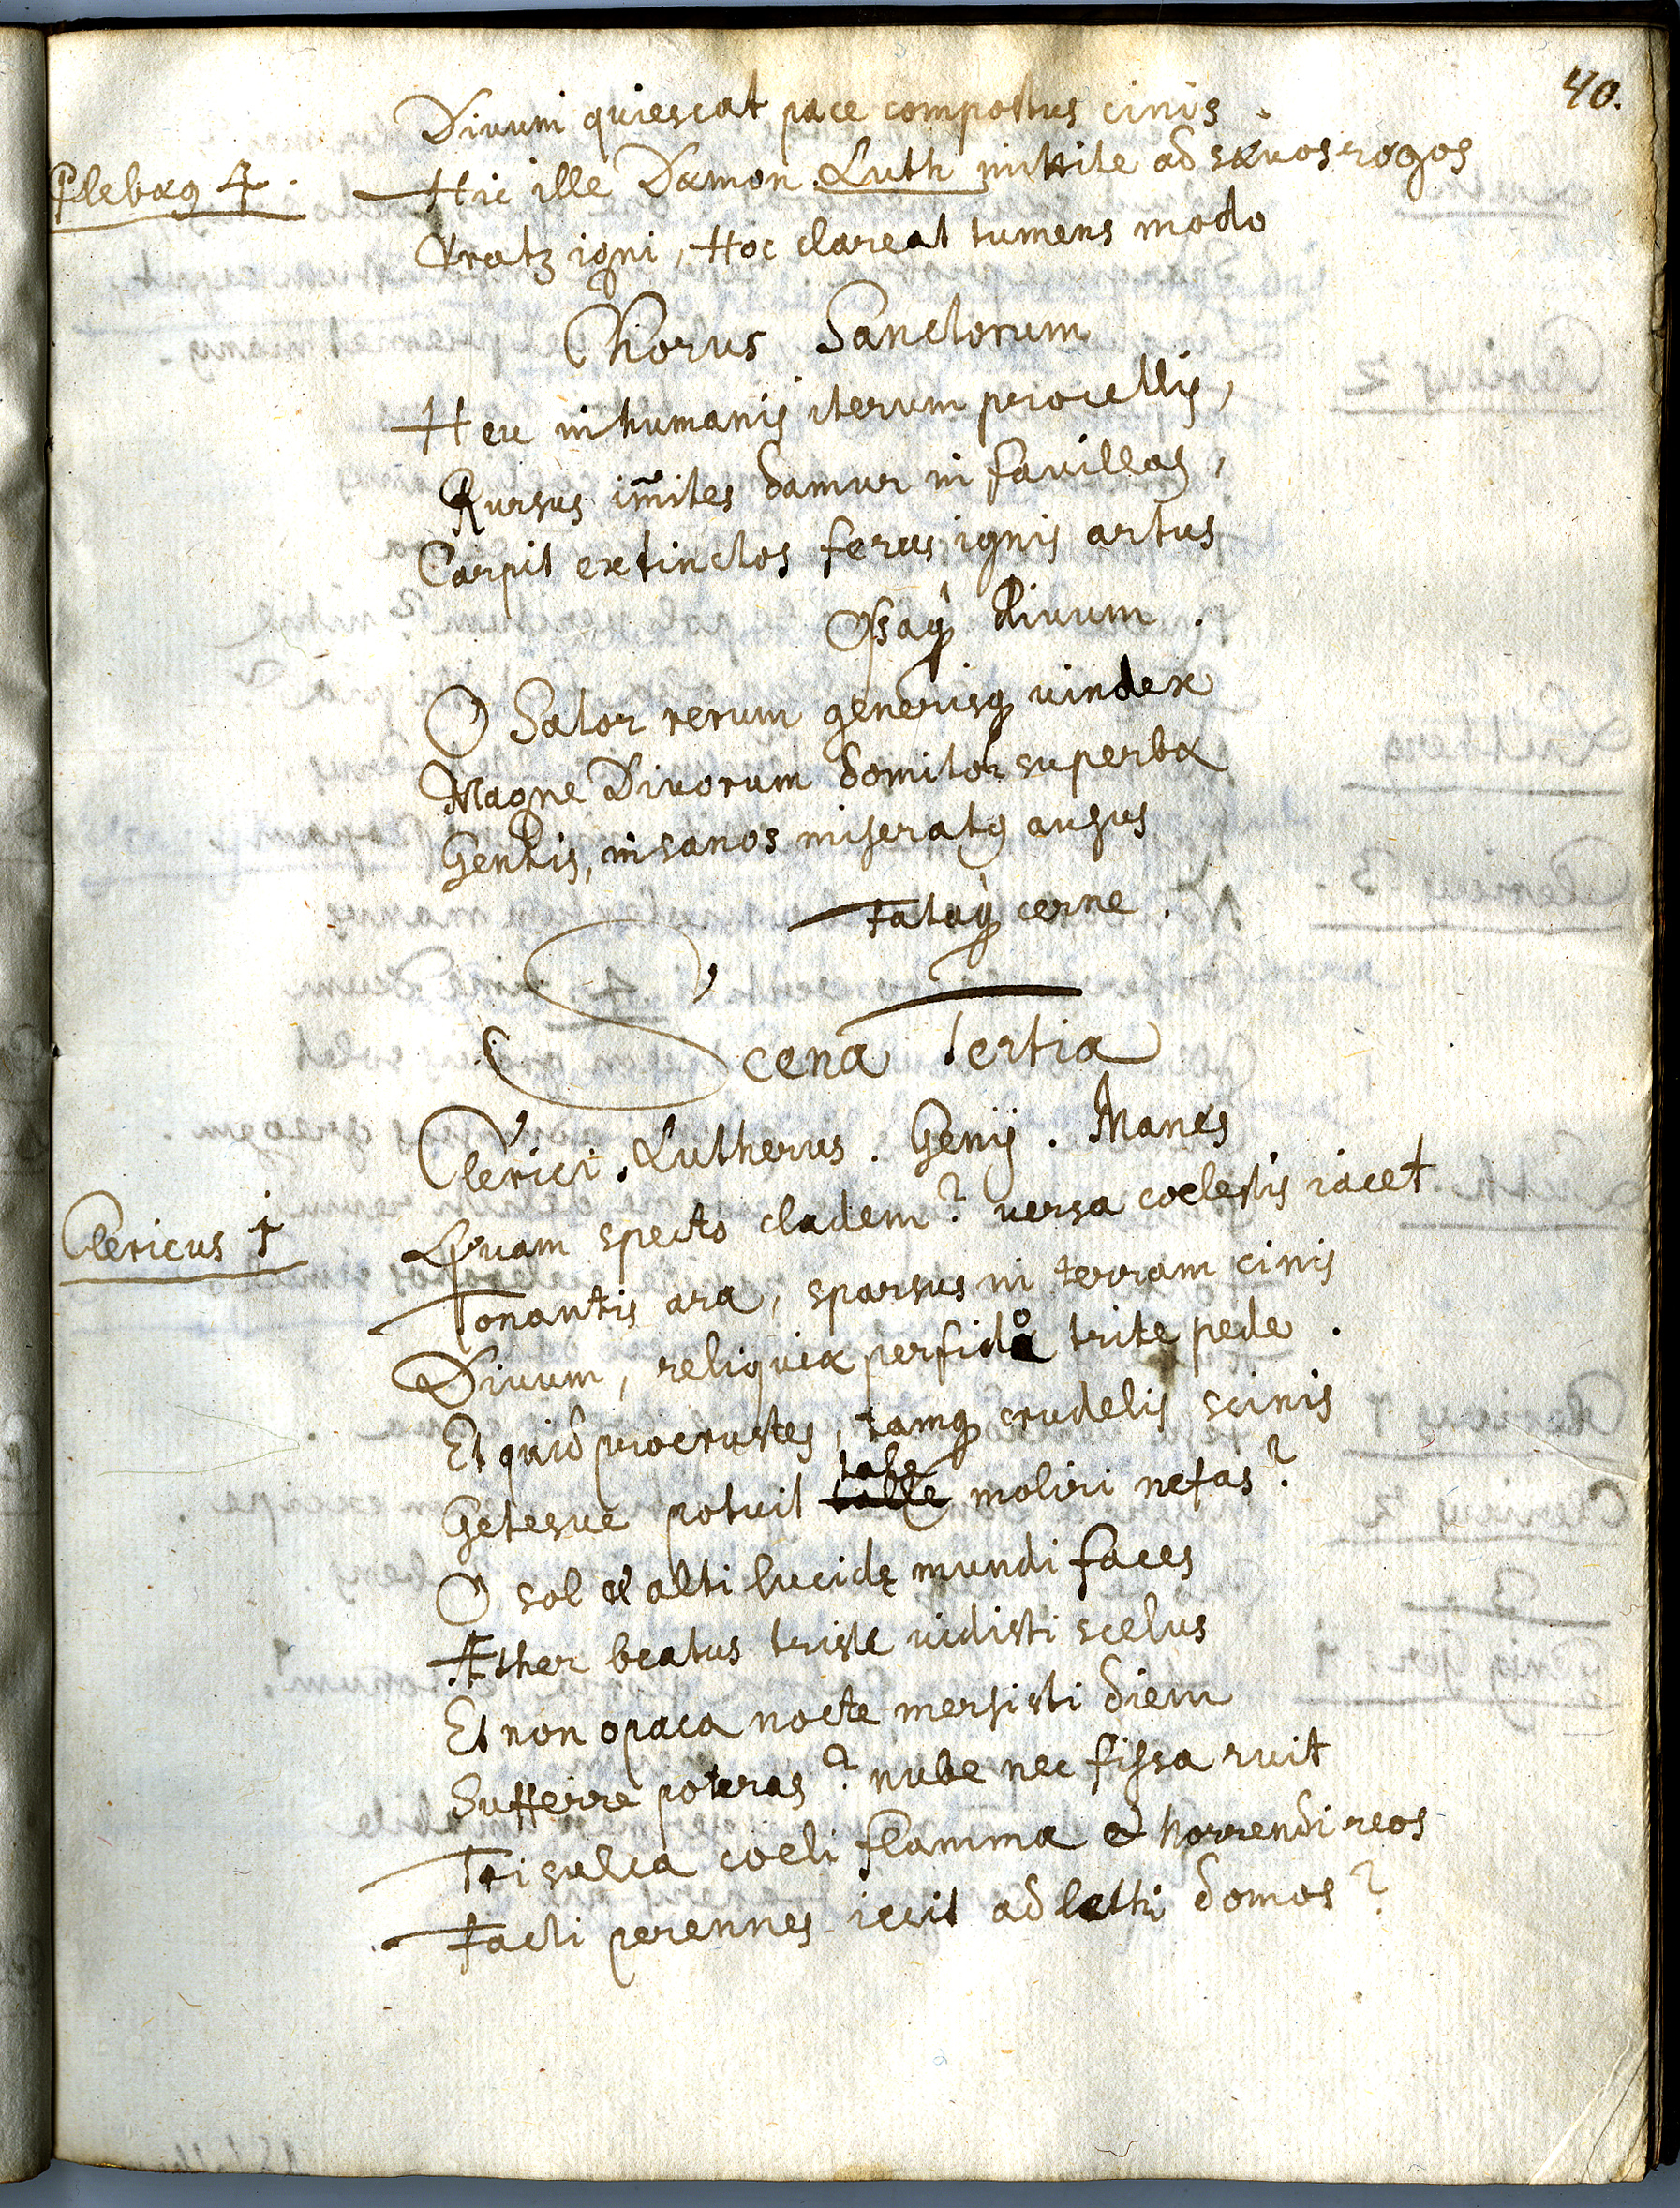 40.
Divum quiescat pace compostus cinis.
Plebæꝯ 4. Hic ille Dæmon. Luth mittite ad sævos rogos
Cratꝫ igni, Hoc clareat tumens modo
Chorus Sanctorum
Heu inhumanis iterum procellis,
Rursus im̃ites damur in favillas,
Carpit extinctos ferus ignis artus
Ossaqꝫ Divum.
O Sator rerum generisqꝫ vindex
Magne Divorum domitor superbæ
Gentis, insanos miseratꝯ ausus
Fataqꝫ cerne.
Scena Tertia
Clerici. Lutherus. Genij. Manes
Clericus 1 Quam specto cladem? versa coelestis iacet
Tonantis ara, sparsus in terram cinis
Divum, reliquiæ perfido trite pede.
Et quid procrustes, tamqꝫ crudelis scinis
Getesve potuit tale moliri nefas?
O sol et alti lucidę mundi faces
Æther beatus triste vidisti scelus
Et non opaca nocte mersisti diem
Sufferre poteras? nube nec fissa ruit
Trisulca coeli flamma & horrendi reos
Facti perennes iecit ad lethi domos?